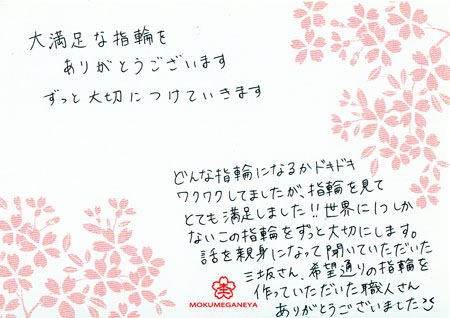 大満足な指輪を
ありがとうございます
ずっと大切につけていきます
どんな指輪になるかドキドキ
ワクワクしてましたが、指輪を見て
とても満足しました!!世界に1つしか
ないこの指輪をずっと大切にします。
話を親身になって聞いていただいた
三坂さん、希望通りの指輪を
作っていただいた職人さん
ありがとうございました
MOKUMEGANEYA